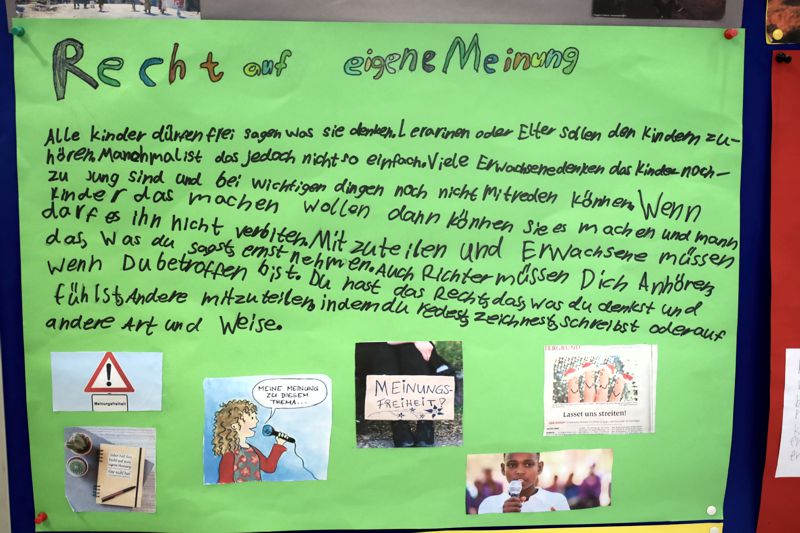 Recht auf eigene Meinung
Alle kinder dürfen frei sagen was sie denken. Lerarinen oder Elter sollen den kindern zu-
hören. Manchmal ist das jedoch nicht so einfach. Viele Erwachsene denken das Kinder noch
zu jung sind und bei wichtigen dingen noch nicht Mitreden können. Wenn
kinder das machen wollen dann können sie es machen und mann
darf es ihn nicht verbiten. Mitzuteilen und Erwachsene müssen
das, was du sagst, ernst nehmen. Auch Richter müssen Dich Anhören,
wenn Du betroffen bist. Du hast das Recht, das, was du denkst und
fühlst, Andere mitzuteilen, indem du redest, zeichnest, schreibst oder auf
andere Art und Weise.
Meinungsfreiheit
MEINE MEINUNG
ZU DIESEM
THEMA...
MEINUNGS-
FREIHEIT?
Lasset uns streiten!